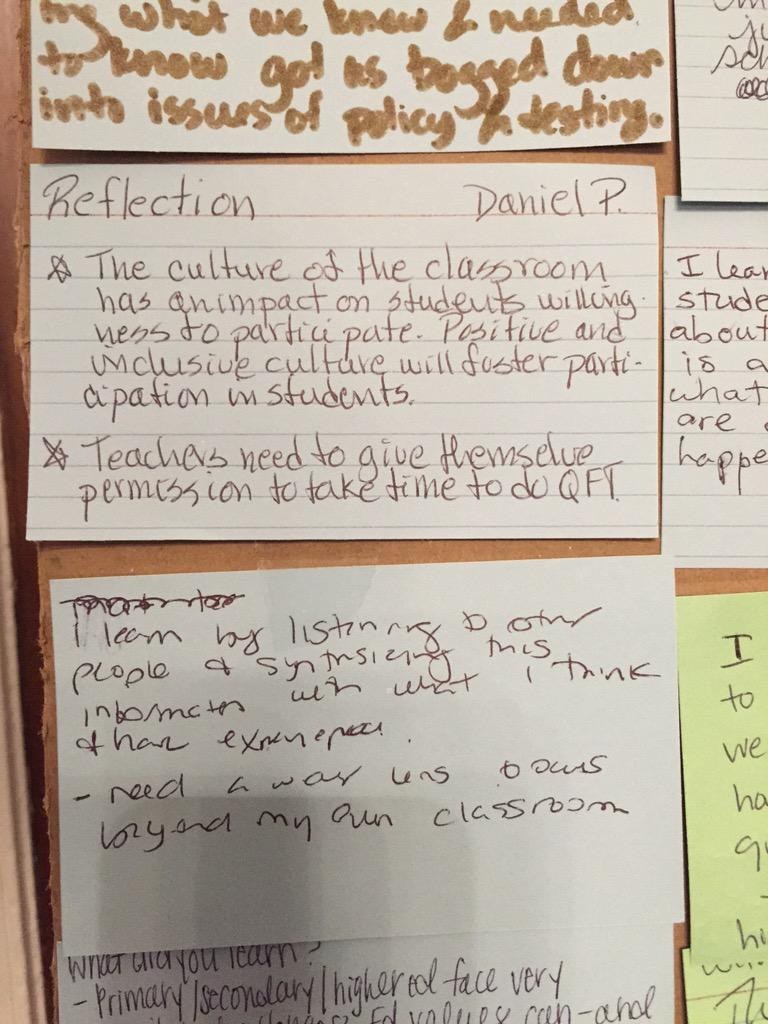 what we knew & needed
to know got us bogged down
into issues of policy & testing.
Reflection Daniel P.
☆ The culture of the classroom
has an impact on students willing-
ness to participate. Positive and
inclusive culture will foster parti-
cipation in students.
☆ Teachers need to give themselve
permission to take time to do QFT.
I learn by listening to other
people & synthsizing this
information with what I think
& have experienced.
- need a way lens
beyond my own classroom
What did you learn?
- Primary/secondary/higher ed face very
Ed values can and
I lear
stude
about
is a
what
are
happe
I
to
we
ha
hi